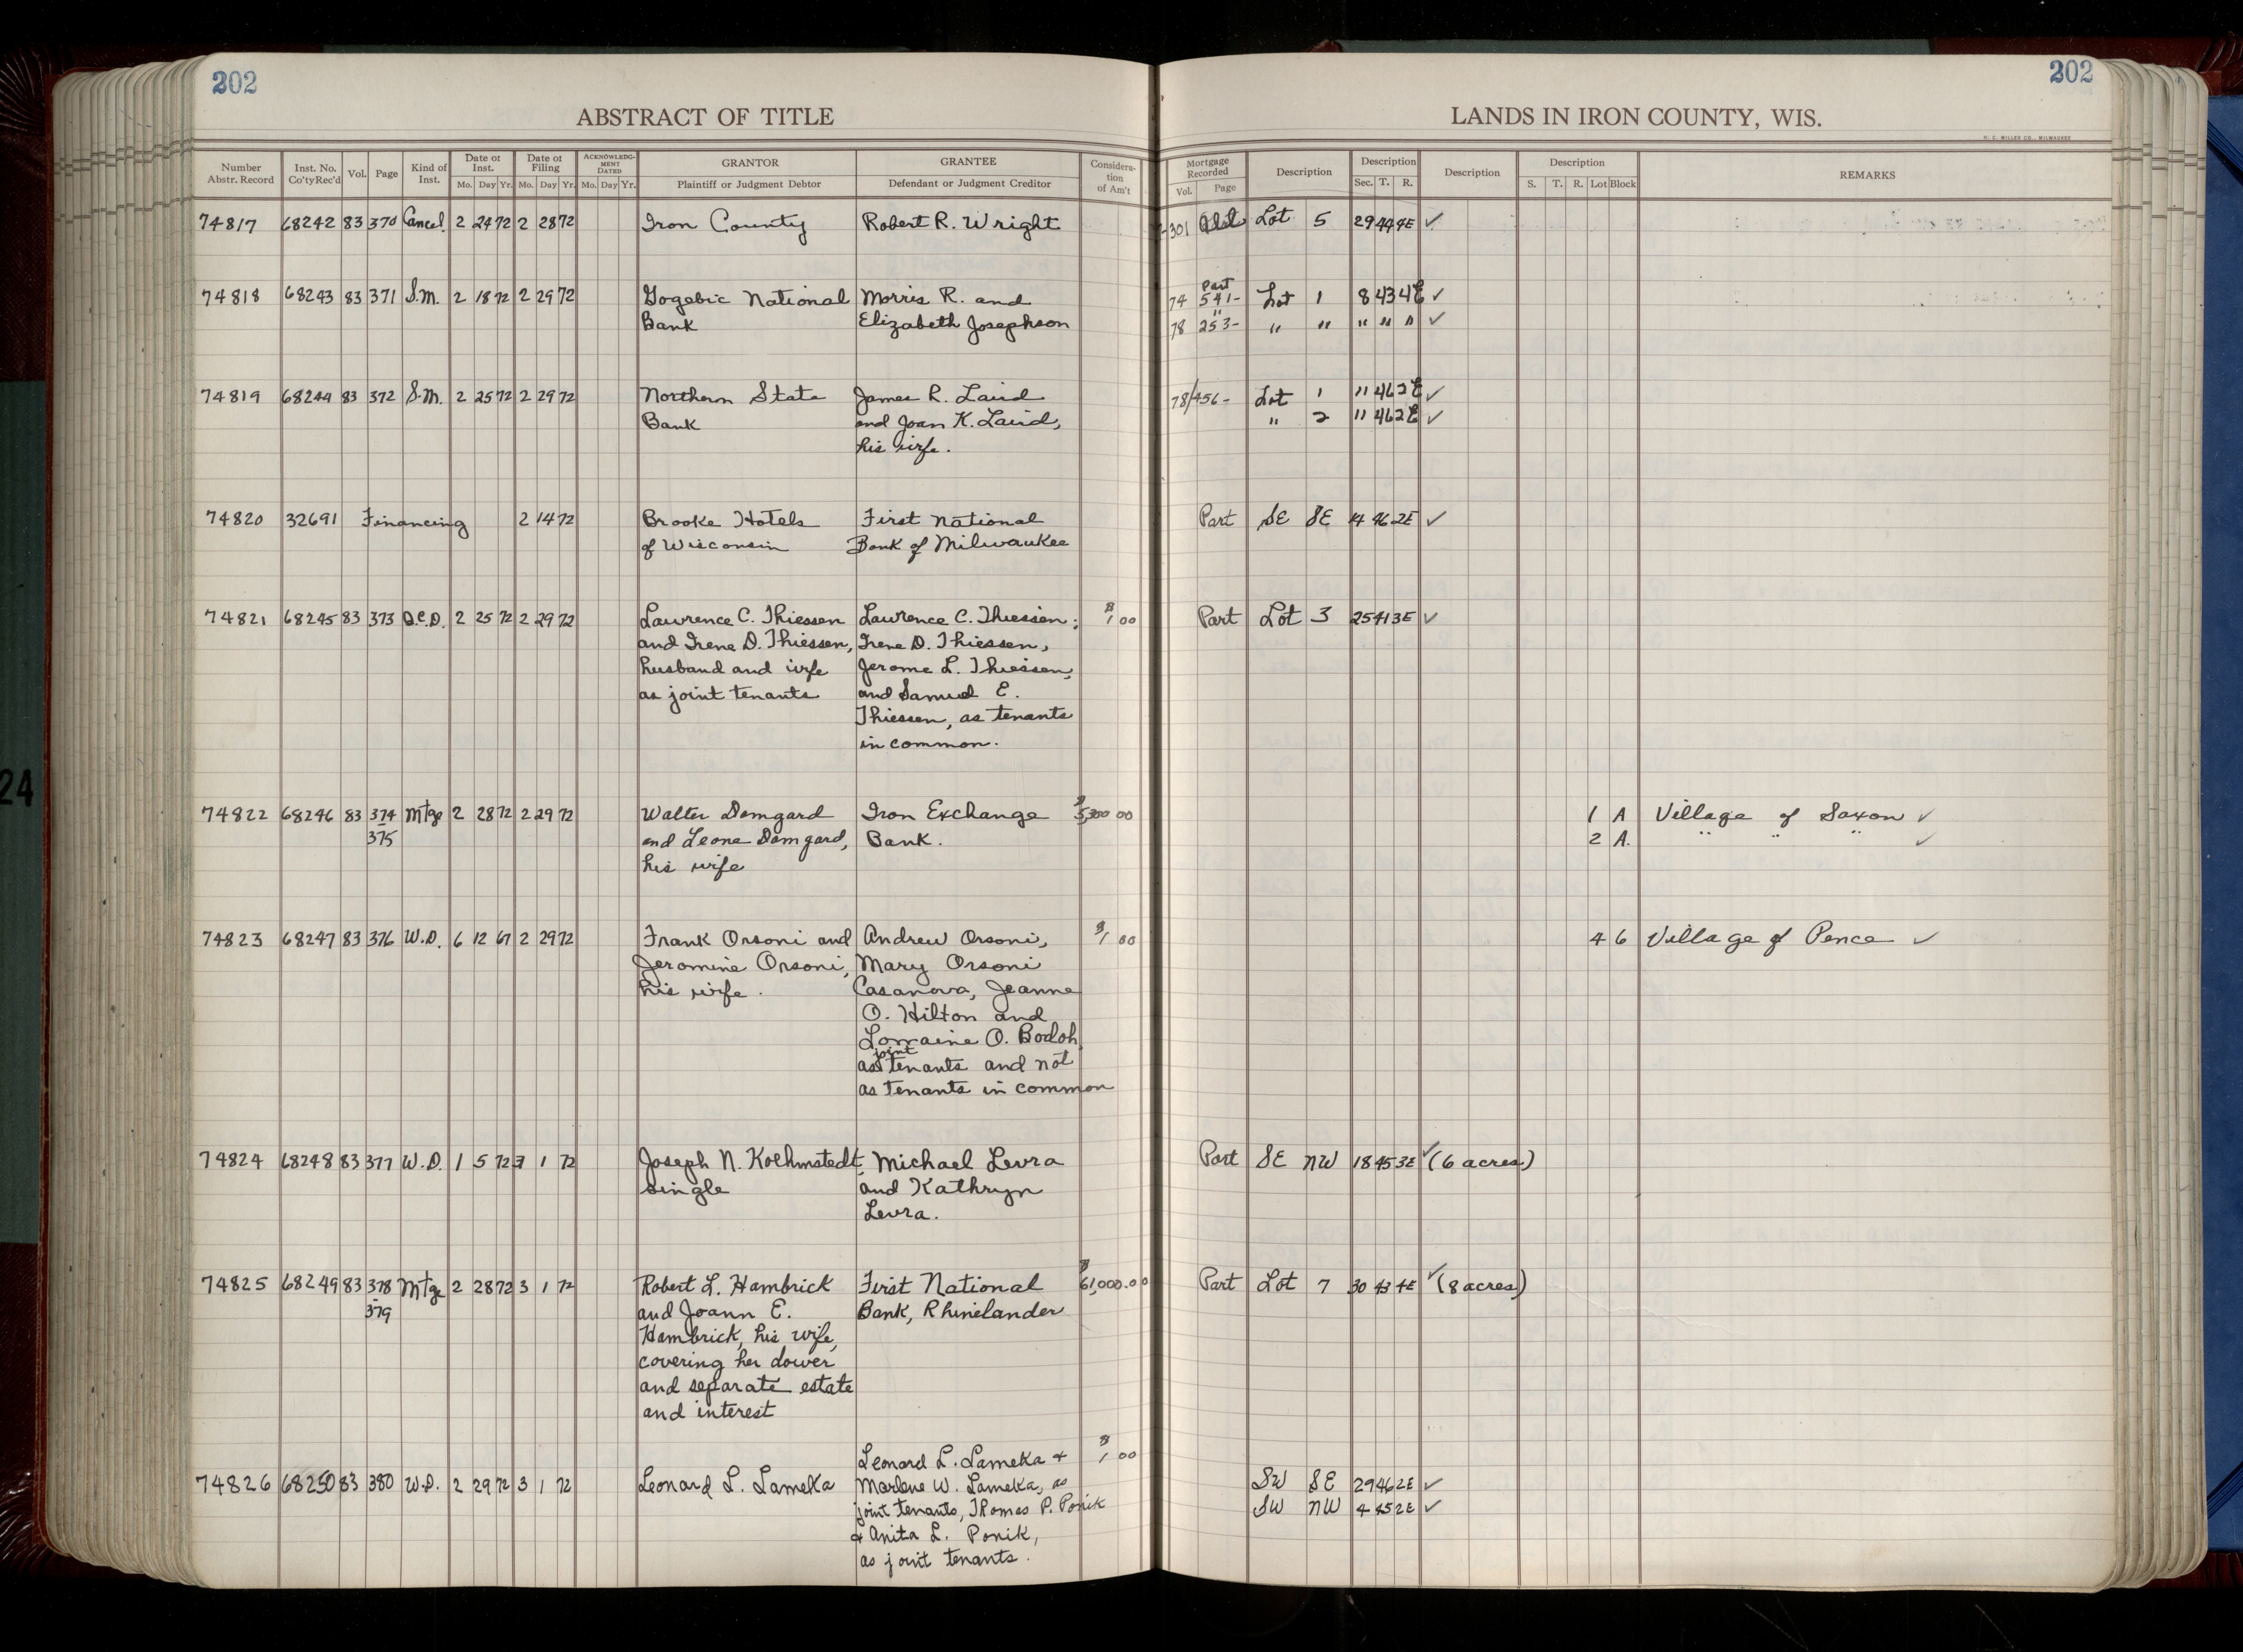 202
202
ABSTRACT OF TITLE
LANDS IN IRON COUNTY, WIS.
H. C. MILLER CO., MILWAUKEE
Number Abstr. Record Inst. No. Co'ty Rec'd Vol. Page Kind of Inst. Date of Inst. Mo. Day Yr. Date of Filing Mo. Day Yr. ACKNOWLEDGMENT DATED Mo. Day Yr. GRANTOR Plaintiff or Judgment Debtor GRANTEE Defendant or Judgment Creditor Consideration of Am't Mortgage Recorded Vol. Page Description Description Sec. T. R. Description Description S. T. R. Lot Block REMARKS
74817 68242 83 370 Cancel. 2 24 72 2 28 72 Iron County Robert R. Wright 301 Lot 5 29 44 4E ✓
Part
74818 68243 83 371 S.M. 2 18 72 2 29 72 Gogebic National Morris R. and 74 541- Lot 1 8 43 4E ✓
Bank Elizabeth Josephson 78 253- " " " " " ✓
74819 68244 83 372 S.M. 2 25 72 2 29 72 Northern State James R. Laird 78/456- Lot 1 11 46 2E ✓
Bank and Joan K. Laird, " 2 11 46 2E ✓
his wife.
74820 32691 Financing 2 14 72 Brooke Hotels First National Part SE SE 14 46 2E ✓
of Wisconsin Bank of Milwaukee
74821 68245 83 373 Q.C.D. 2 25 72 2 29 72 Lawrence C. Thiessen Lawrence C. Thiessen; $1 00 Part Lot 3 25 41 3E ✓
and Irene D. Thiessen, Irene D. Thiessen,
husband and wife Jerome L. Thiessen,
as joint tenants and Samuel E.
Thiessen, as tenants
in common.
74822 68246 83 374 Mtge 2 28 72 2 29 72 Walter Damgard Iron Exchange $5,300 00 1 A Village of Saxon ✓
- 375 and Leone Damgard, Bank. 2 A. " " " ✓
his wife
74823 68247 83 376 W.D. 6 12 67 2 29 72 Frank Orsoni and Andrew Orsoni, $1 00 4 6 Village of Pence ✓
Jeromine Orsoni, Mary Orsoni
his wife. Casanova, Jeanne
O. Hilton and
Lorraine O. Bodoh
as joint tenants and not
as tenants in common
74824 68248 83 377 W.D. 1 5 72 3 1 72 Joseph N. Koehmstedt, Michael Levra Part SE NW 18 45 3E ✓ (6 acres)
single and Kathryn
Levra.
74825 68249 83 378 Mtge 2 28 72 3 1 72 Robert L. Hambrick First National $61,000.00 Part Lot 7 30 43 4E ✓ (8 acres)
- 379 and Joann E. Bank, Rhinelander
Hambrick, his wife,
covering her dower
and separate estate
and interest
Leonard L. Lameka & $1 00
74826 68250 83 380 W.D. 2 29 72 3 1 72 Leonard L. Lameka Marlene W. Lameka, as SW SE 29 46 2E ✓
joint tenants, Thomas P. Ponik SW NW 4 45 2E ✓
& Anita L. Ponik,
as joint tenants.
24